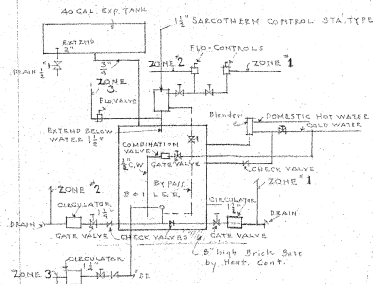 40 GAL. EXP. TANK
1½" SARCOTHERM CONTROL STA. TYPE
EXTEND
2"
FLO-CONTROLS
DRAIN ½"
¾"
ZONE #2
ZONE #1
ZONE
3
FLO. VALVE
Blender
DOMESTIC HOT WATER
COLD WATER
EXTEND BELOW
WATER 1½"
COMBINATION
VALVE
GATE VALVE
½" C.W.
CHECK VALVE
BY PASS
BOILER
ZONE #2
ZONE #1
CIRCULATOR
1¼"
CIRCULATOR
1½"
DRAIN
DRAIN
GATE VALVE
CHECK VALVES
GATE VALVE
CIRCULATOR
1½"
8" high Brick Base
by Heat. Cont.
ZONE 3